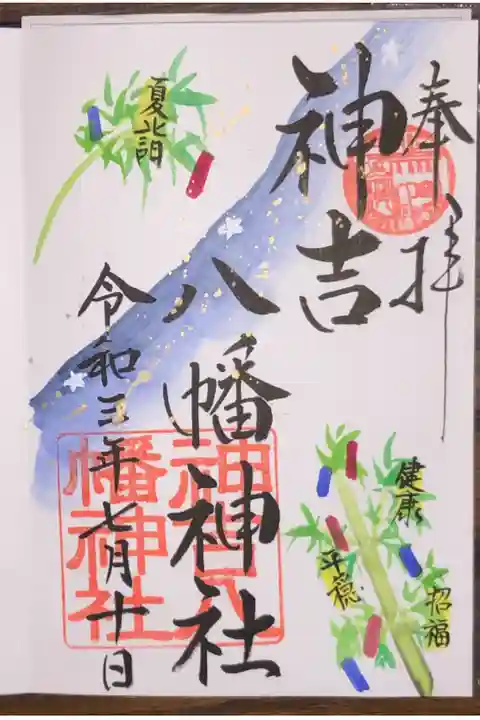 奉拝
神吉
八幡神社
令和三年七月十日
夏詣
健康
平穏
招福
神吉八
幡神社